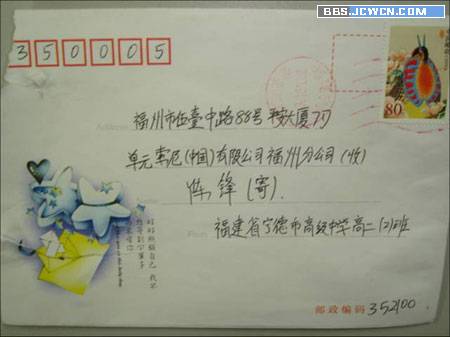 BBS.JCWCN.COM
350005
80
福州市伍臺中路88号 平安大厦7门
单元索尼(中国)有限公司福州分公司(收)
陈锋(寄)
福建省宁德市高级中学高二(2)班
From
邮政编码 352100